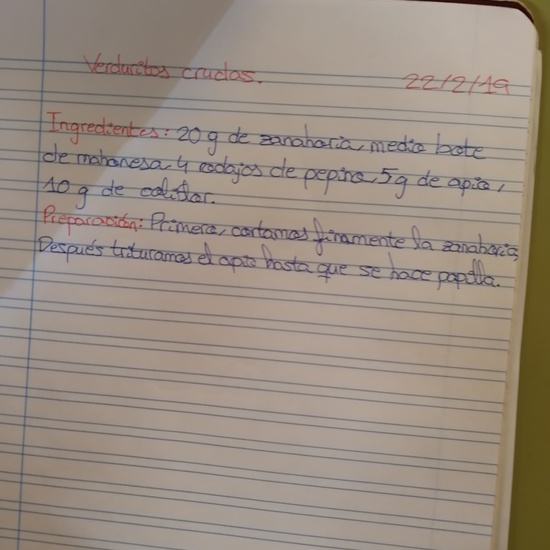 Verduritas crudas. 22/2/19
Ingredientes: 20 g de zanahoria, medio bote
de mahonesa, 4 rodajas de pepino, 5g de apio,
10 g de coliflor.
Preparación: Primero, cortamos finamente la zanahoria
Después trituramos el apio hasta que se hace papilla.